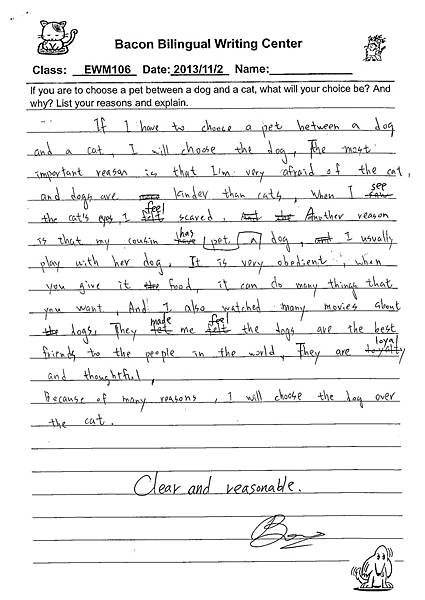 Bacon Bilingual Writing Center
Class: EWM106 Date: 2013/11/2 Name:
If you are to choose a pet between a dog and a cat, what will your choice be? And
why? List your reasons and explain.
If I have to choose a pet between a dog
and a cat, I will choose the dog, The most
important reason is that I'm very afraid of the cat,
and dogs are kinder than cats, When I see
the cat's eyes, I feel scared. Another reason
is that my cousin has pet a dog, and I usually
play with her dog. It is very obedient, when
you give it food, it can do many things that
you want, And I also watched many movies about
dogs, They made me feel the dogs are the best
friends to the people in the world, They are loyal
and thoughtful,
Because of many reasons, I will choose the dog over
the cat.
Clear and reasonable.